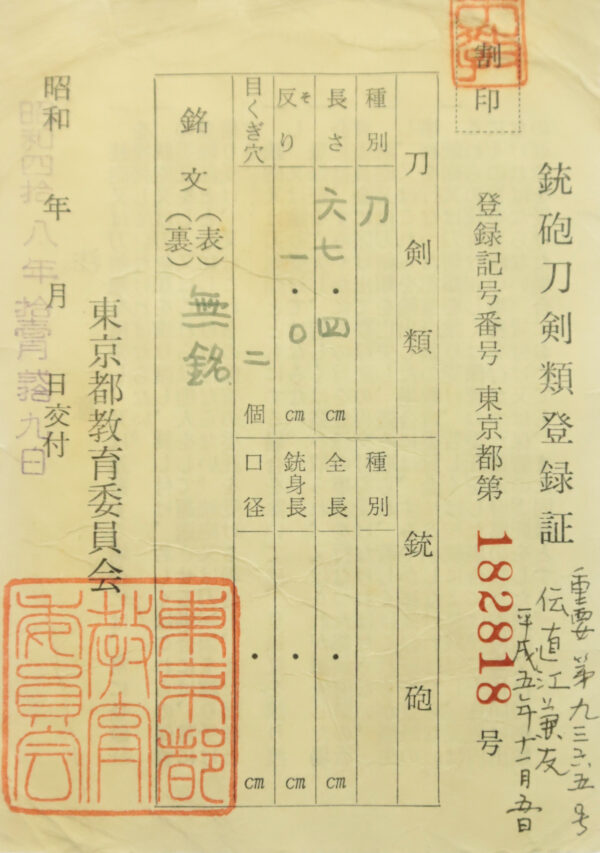 割印
銃砲刀剣類登録証
登録記号番号 東京都第 182818 号
重要第九三六五号
伝直江兼友
平成五年十一月五日
刀剣類
種別 刀
長さ 六七・四 cm
反り そ 一・〇 cm
目くぎ穴 二 個
銘文(表)(裏) 無銘
銃砲
種別
全長 ・ cm
銃身長 ・ cm
口径 ・ cm
東京都教育委員会
昭和 年 月 日交付
昭和四拾八年拾壹月 九日
東京都教育委員会